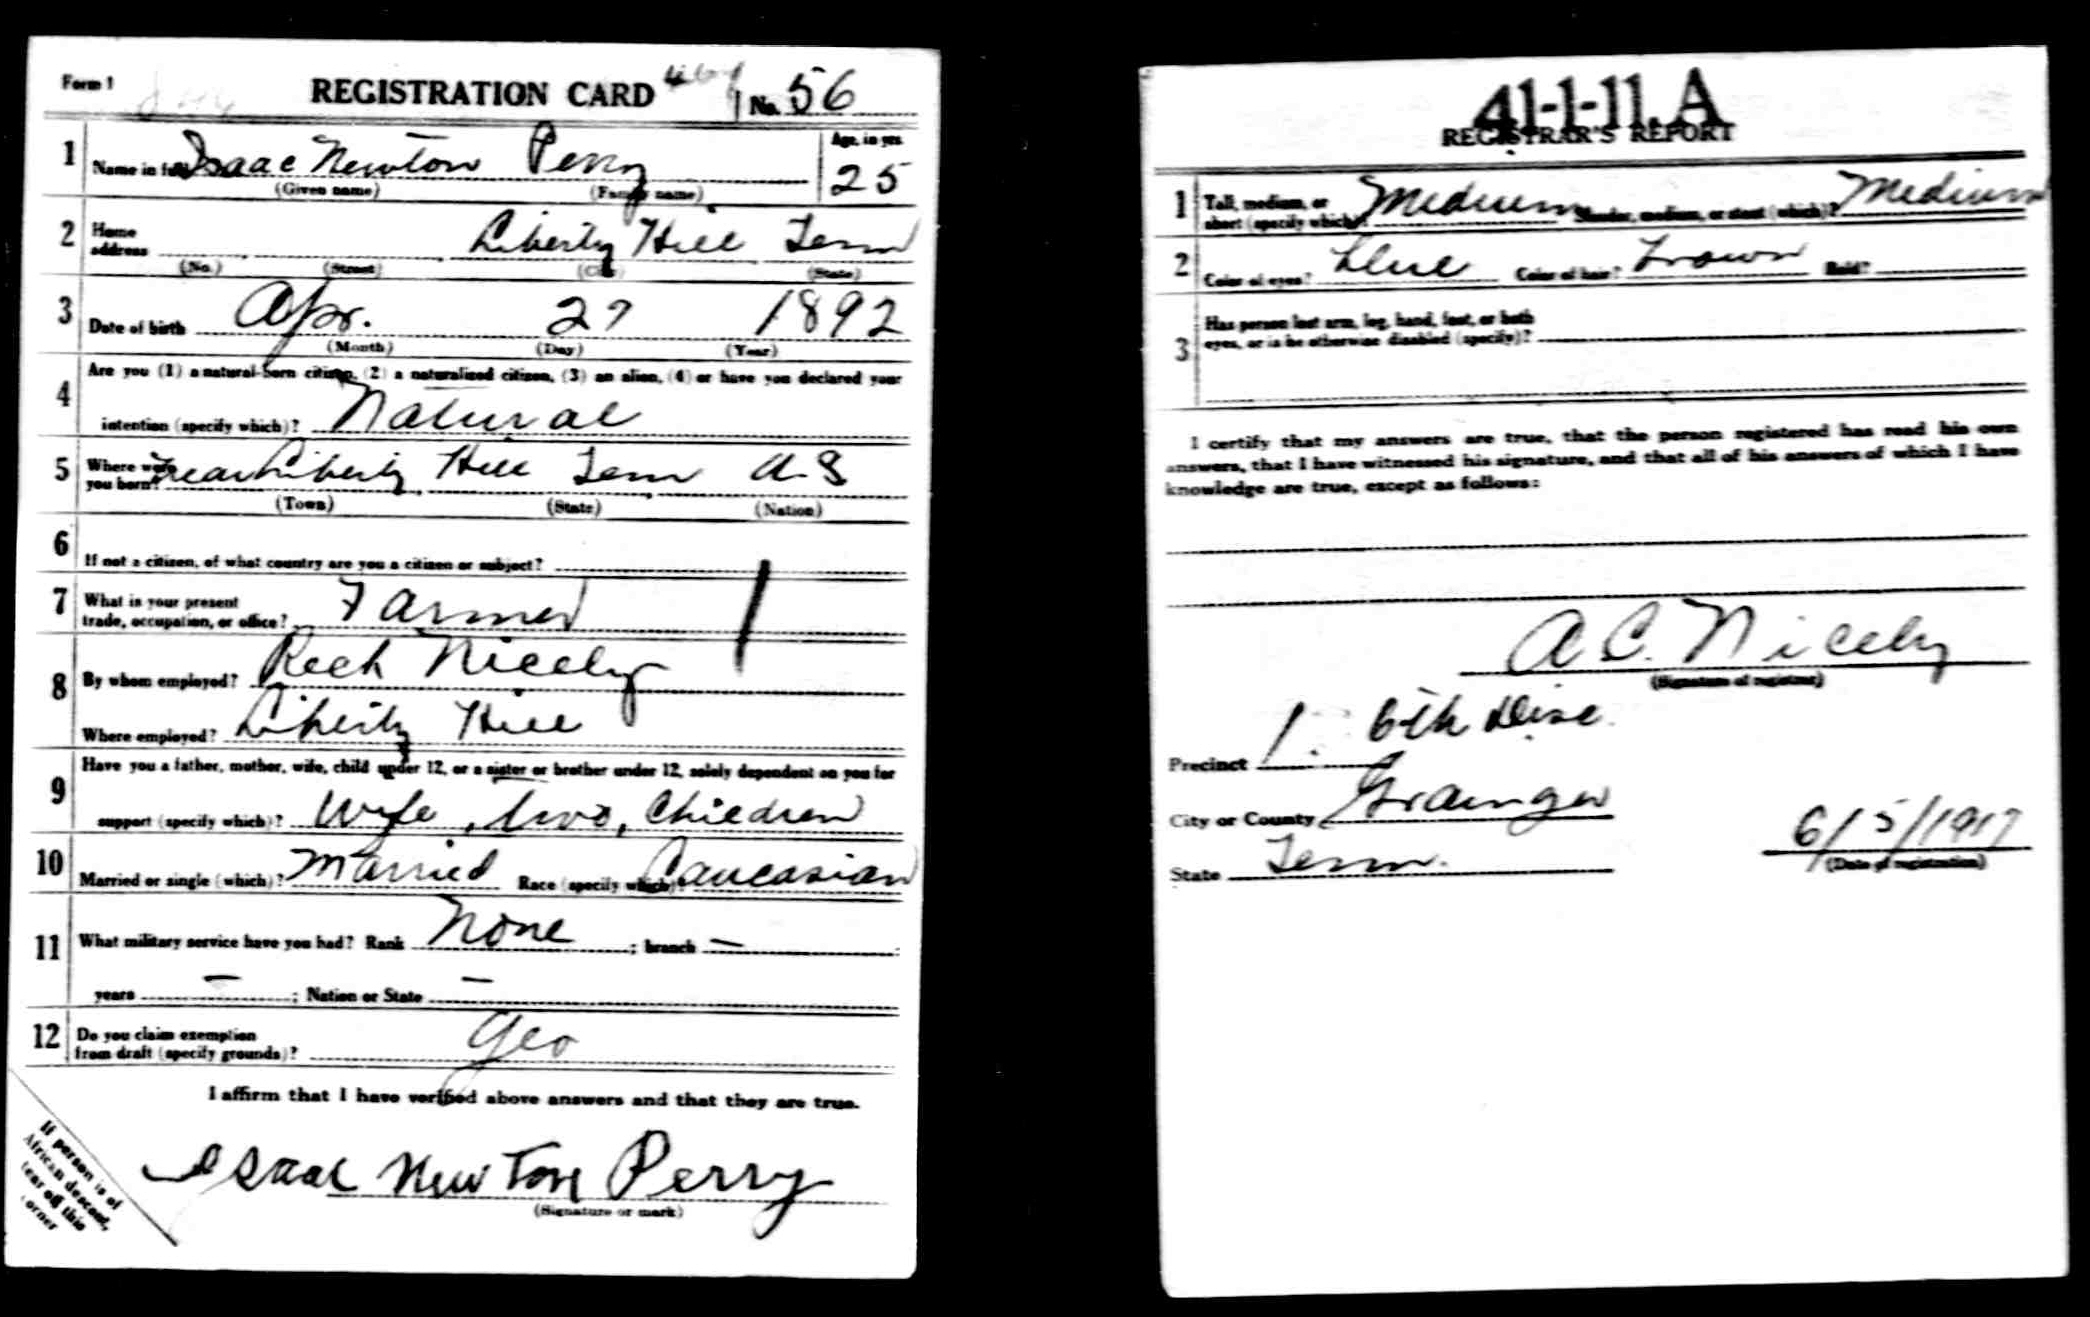 Form 1
REGISTRATION CARD No. 56
1 Name in full Isaac Newton Perry Age, in yrs. 25
(Given name) (Family name)
2 Home address Liberty Hill Tenn
(No.) (Street) (City) (State)
3 Date of birth Apr. 27 1892
(Month) (Day) (Year)
4 Are you (1) a natural-born citizen, (2) a naturalized citizen, (3) an alien, (4) or have you declared your
intention (specify which)? Natural
5 Where were you born? near Liberty Hill Tenn U.S
(Town) (State) (Nation)
6 If not a citizen, of what country are you a citizen or subject?
7 What is your present trade, occupation, or office? Farmer
8 By whom employed? Nicely
Where employed? Liberty Hill
9 Have you a father, mother, wife, child under 12, or a sister or brother under 12, solely dependent on you for
support (specify which)? Wife, two, Children
10 Married or single (which)? Married Race (specify which)? Caucasian
11 What military service have you had? Rank None ; branch —
years — ; Nation or State —
12 Do you claim exemption from draft (specify grounds)? Yes
I affirm that I have verified above answers and that they are true.
Isaac Newton Perry
(Signature or mark)
If person is of
African descent,
tear off this
corner
41-1-11. A
REGISTRAR'S REPORT
1 Tall, medium, or short (specify which)? Medium Slender, medium, or stout (which)? Medium
2 Color of eyes? Blue Color of hair? Brown Bald?
3 Has person lost arm, leg, hand, foot, or both
eyes, or is he otherwise disabled (specify)?
I certify that my answers are true, that the person registered has read his own
answers, that I have witnessed his signature, and that all of his answers of which I have
knowledge are true, except as follows:
A C. Nicely
(Signature of registrar)
Precinct 1. 6th Disc.
City or County Grainger
State Tenn. 6/5/1917
(Date of registration)